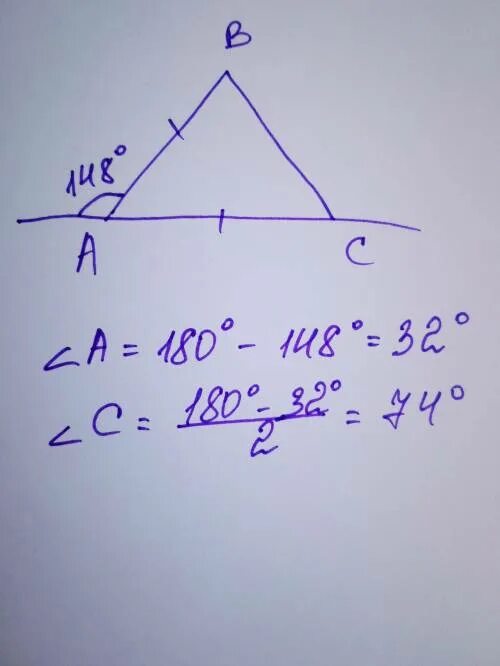 B
148°
A
C
∠A = 180° - 148° = 32°
∠C = (180° - 32°)/2 = 74°